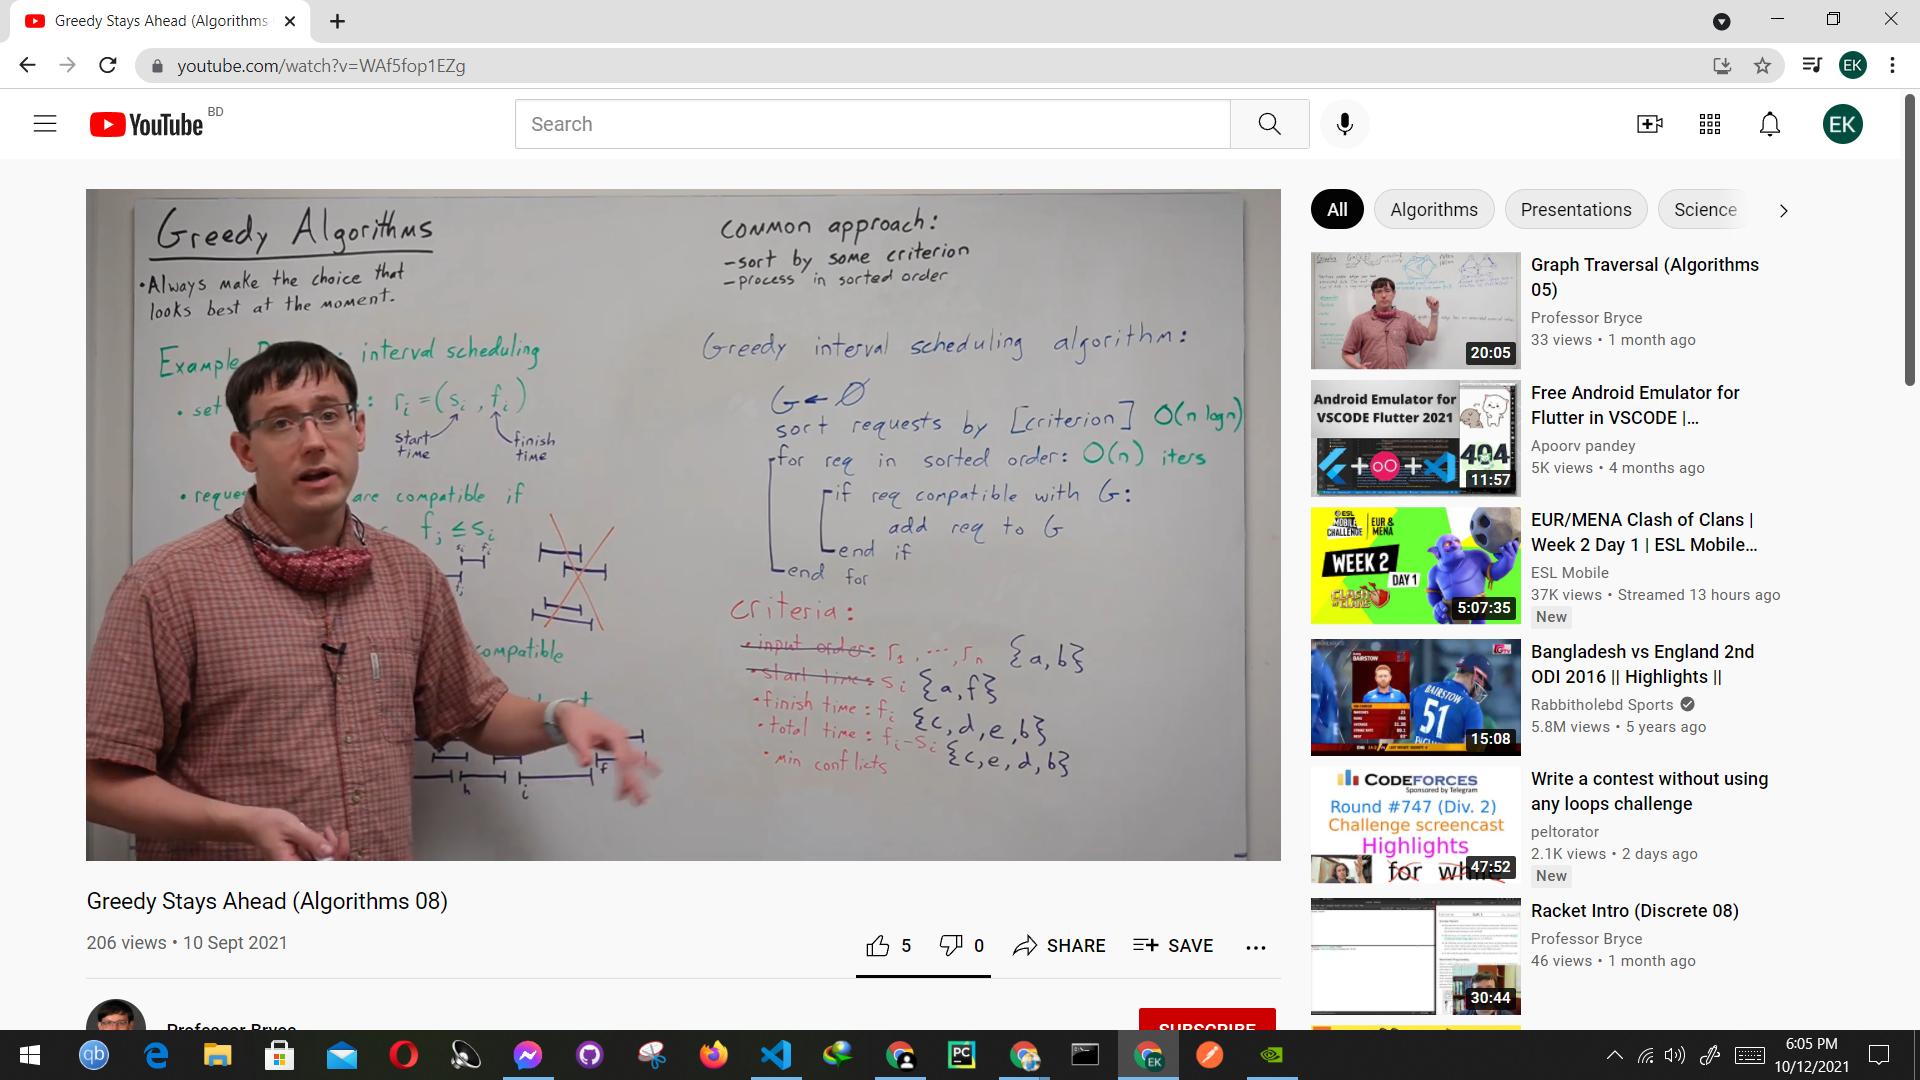 Greedy Stays Ahead (Algorithms
youtube.com/watch?v=WAf5fop1EZg
EK
YouTube BD
Search
EK
Greedy Algorithms
• Always make the choice that
looks best at the moment.
Example : interval scheduling
• set : ri = (si, fi)
start time
finish time
• are compatible if
fj ≤ si
si fi
fj
compatible
f
h
i
Common approach:
- sort by some criterion
- process in sorted order
Greedy interval scheduling algorithm:
G ← ∅
sort requests by [criterion] O(n log n)
for req in sorted order: O(n) iters
if req compatible with G:
add req to G
end if
end for
criteria:
• input order: r1, ..., rn {a,b}
• start time: si {a,f}
• finish time: fi {c,d,e,b}
• total time: fi-si {c,e,d,b}
• min conflicts
Greedy Stays Ahead (Algorithms 08)
206 views • 10 Sept 2021
5
0
SHARE
SAVE
Professor Bryce
SUBSCRIBE
All
Algorithms
Presentations
Science
20:05
Graph Traversal (Algorithms
05)
Professor Bryce
33 views • 1 month ago
Android Emulator for
VSCODE Flutter 2021
404
11:57
Free Android Emulator for
Flutter in VSCODE |...
Apoorv pandey
5K views • 4 months ago
ESL
MOBILE
CHALLENGE
EUR &
MENA
WEEK 2
DAY 1
CLASH OF CLANS
5:07:35
EUR/MENA Clash of Clans |
Week 2 Day 1 | ESL Mobile...
ESL Mobile
37K views • Streamed 13 hours ago
New
BAIRSTOW
BAIRSTOW
51
15:08
Bangladesh vs England 2nd
ODI 2016 || Highlights ||
Rabbitholebd Sports
5.8M views • 5 years ago
CODEFORCES
Sponsored by Telegram
Round #747 (Div. 2)
Challenge screencast
Highlights
for while
47:52
Write a contest without using
any loops challenge
peltorator
2.1K views • 2 days ago
New
30:44
Racket Intro (Discrete 08)
Professor Bryce
46 views • 1 month ago
qb
PC
EK
6:05 PM
10/12/2021